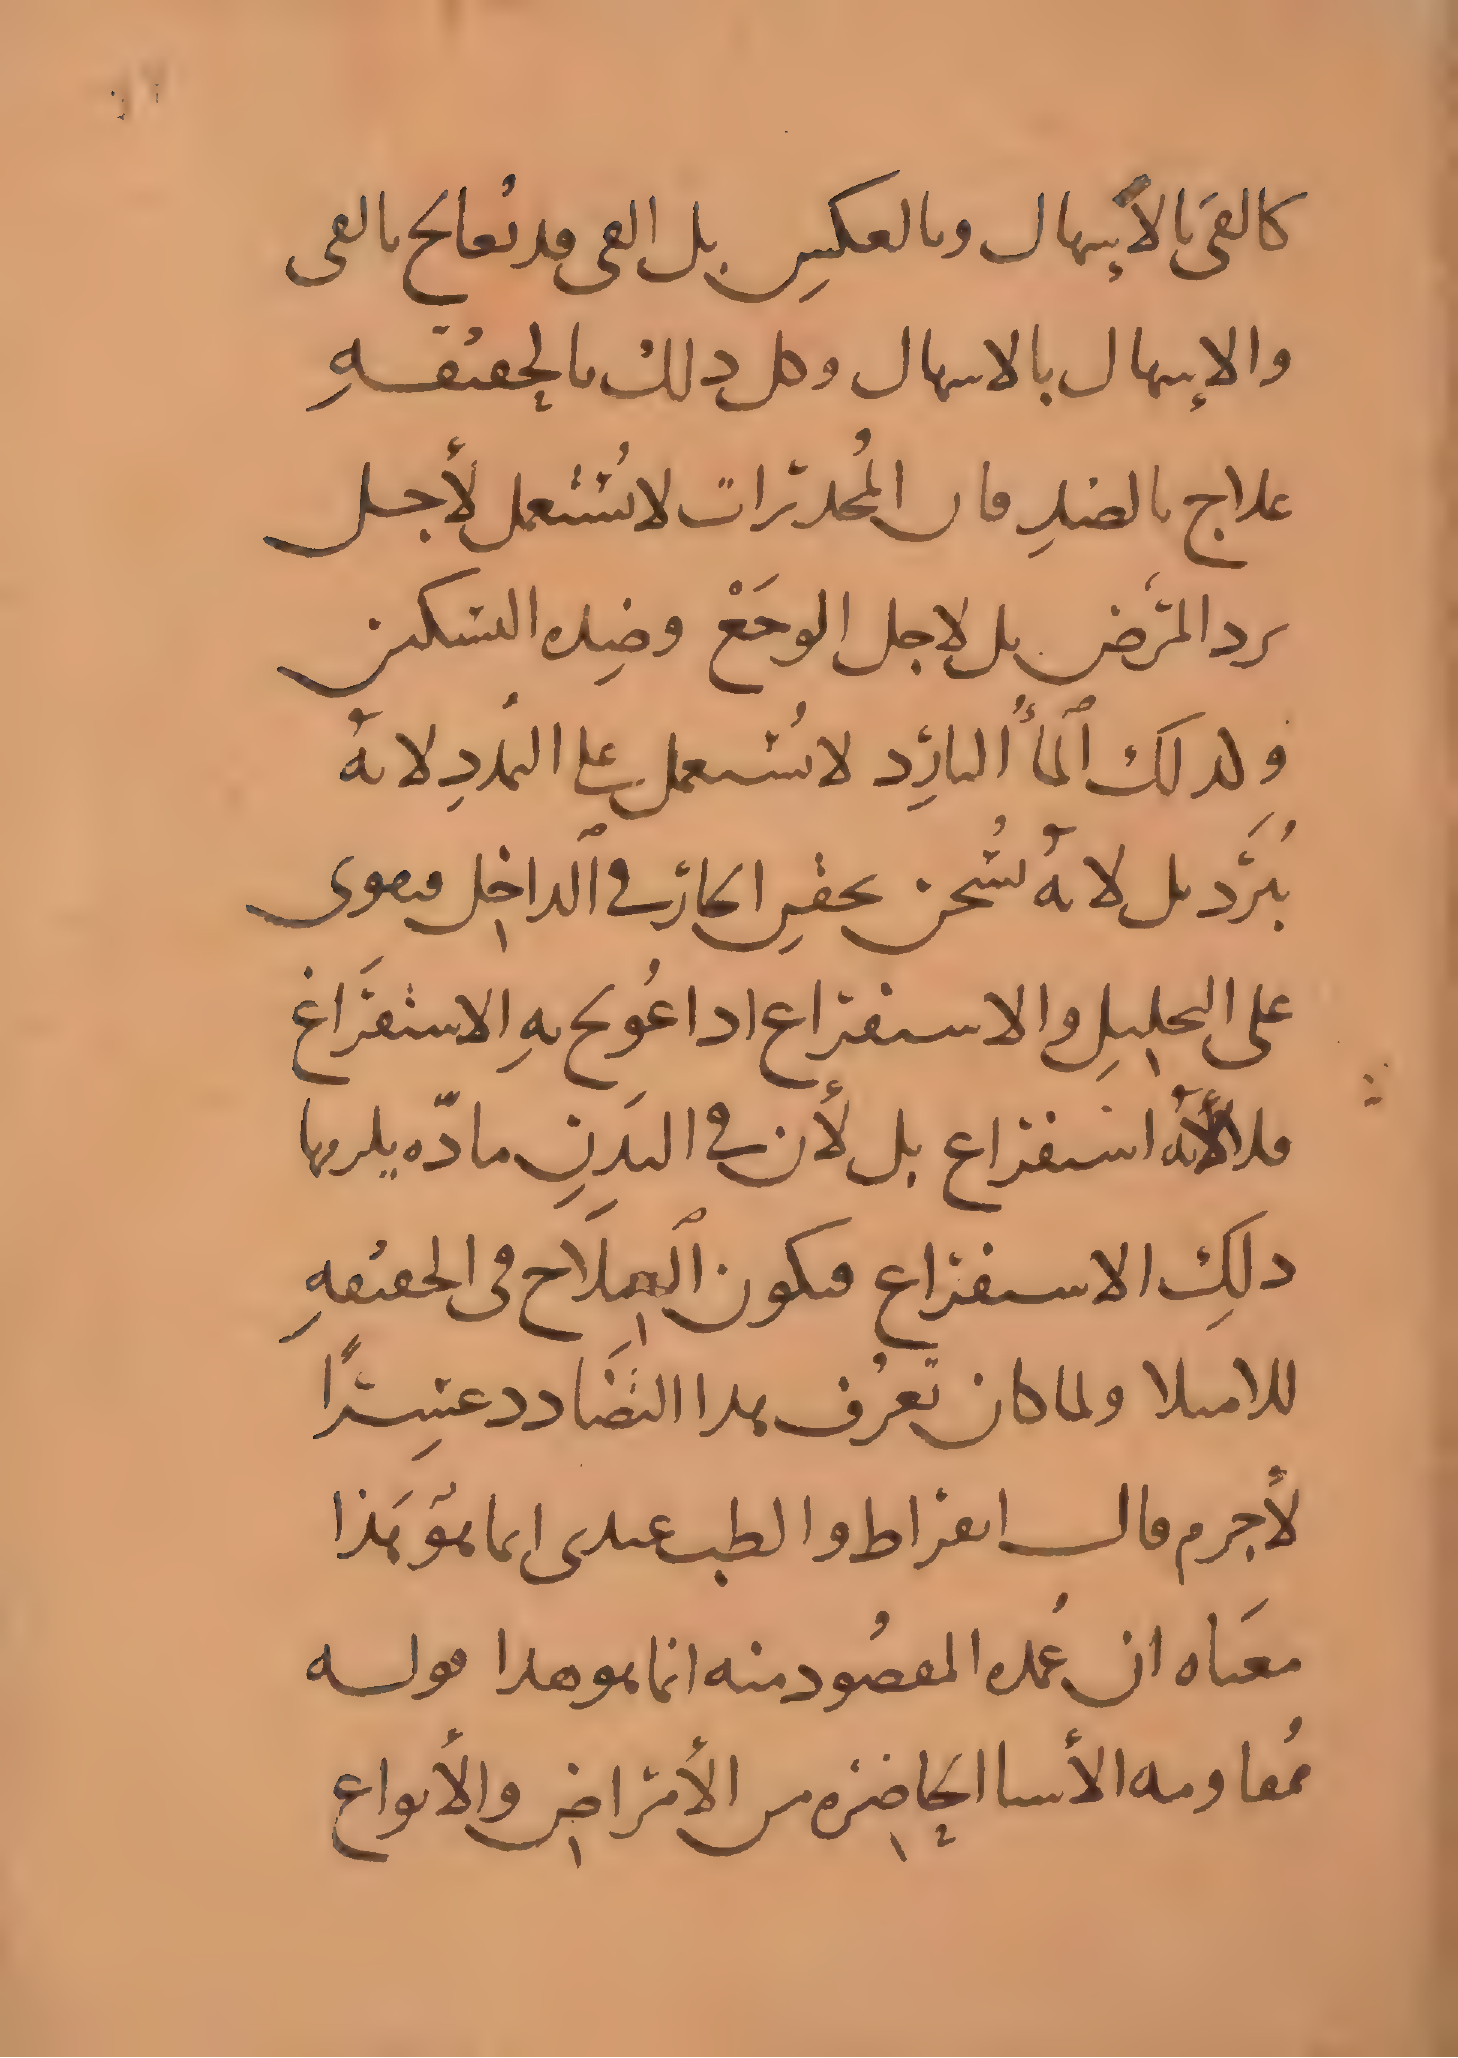 كالقئ بالإسهال وبالعكس بل القى قد يُعالج بالقى
والإسهال بالاسهال وكل ذلك بالحقيقة
علاج بالضد فان المُخدرات لا تُستعمل لأجل
برد المرض بل لاجل الوجع وضده التسكين
ولذلك ٱلمأ البارد لا يُستعمل على البَرد لانهُ
يُبرَّد بل لانهُ يُسخن بحقن الحار في ٱلداخل فيقوى
على التحليل والاستفراغ اذا عُولج به الاستفراغ
فلا لأنهُ استفراغ بل لأن في البَدَنِ مادّه يلزمها
ذلك الاستفراغ فيكون ٱلعلاج فى الحقيقه
للامتلا ولما كان تعرُف هذا التضادد عسِرًا
لأجرم قال ابقراط والطب عندى انما هوَ هَذا
معَناه ان عُمده المقصُود منه انما هو هذا قوله
مُقاومه الأسبا الحاضره من الأمراض والأنواع